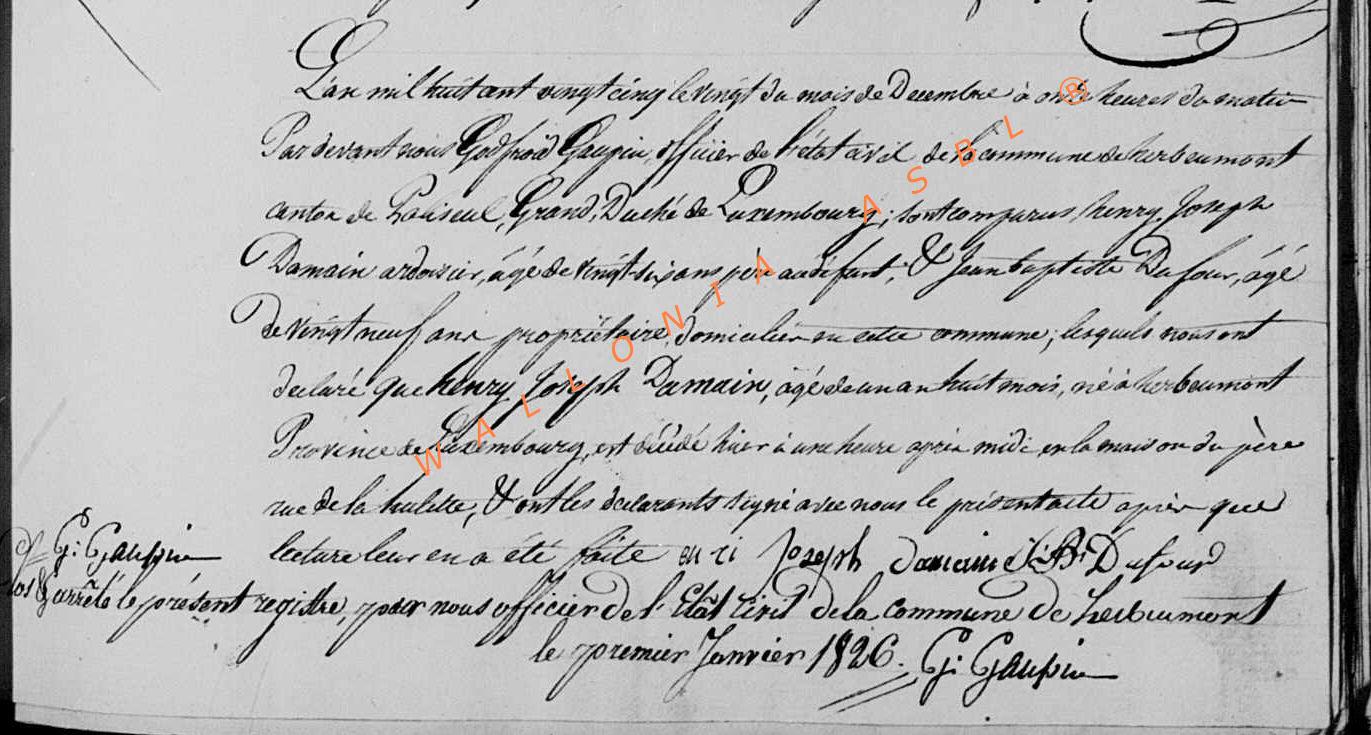 L'an mil huit cent vingt cinq le vingt du mois de Decembre à onze heures du matin
Par devant nous Godfroid Gaupin, officier de l'état civil de la commune de herbeumont
canton de Paliseul, Grand, Duché de Luxembourg; sont comparus, henry Joseph
Damain ardoisier, âgé de vingt-six ans père au défunt; & Jean baptiste Dufour, âgé
de vingt neuf ans propriétaire, domiciliés en cette commune; lesquels nous ont
declaré que henry Joseph Damain, âgé de un an huit mois, né à herbeumont
Province de Luxembourg, est décédé hier à une heure après midi en la maison du père
rue de la hulette, & ont les declarants signé avec nous le présent acte après que
lecture leur en a été faite Joseph damain J: Bte Dufour
G: Gaupin
Clos & arrêté le présent registre, par nous officier de l'Etat civil de la commune de herbeumont
le premier Janvier 1826. G: Gaupin
WALLONIA ASBL ®